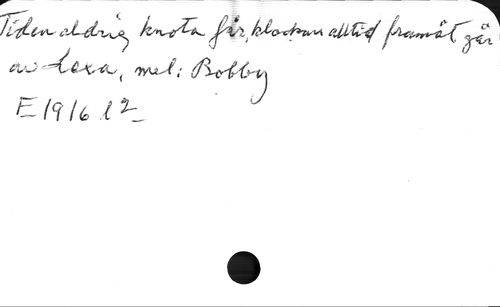 Tiden aldrig knota får, klockan alltid framåt går
av Lexa, mel: Bobby
E 1916 l 2